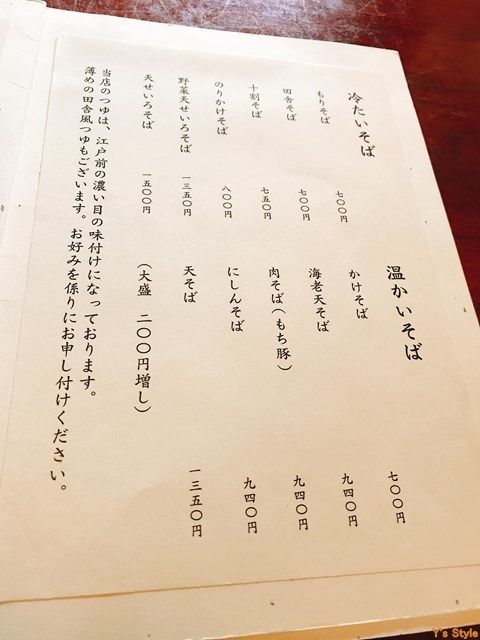 冷たいそば
もりそば 七〇〇円
田舎そば 七〇〇円
十割そば 七五〇円
のりかけそば 八〇〇円
野菜天せいろそば 一三五〇円
天せいろそば 一五〇〇円
温かいそば
かけそば 七〇〇円
海老天そば 九四〇円
肉そば(もち豚) 九四〇円
にしんそば 九四〇円
天そば 一三五〇円
(大盛 二〇〇円増し)
当店のつゆは、江戸前の濃い目の味付けになっております。
薄めの田舎風つゆもございます。お好みを係りにお申し付けください。
Y's Style